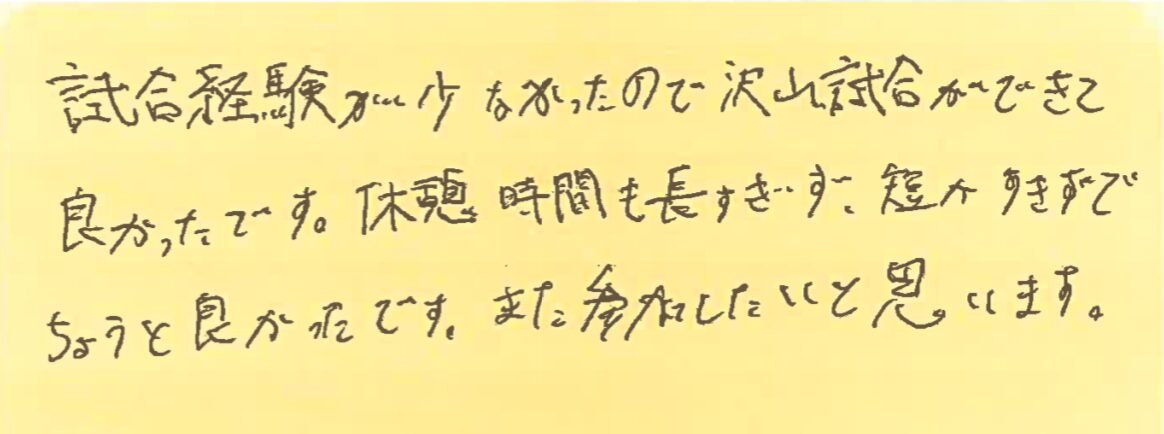 試合経験が少なかったので沢山試合ができて
良かったです。休憩時間も長すぎず、短かすきずで
ちょうど良かったです。また参加したいと思います。